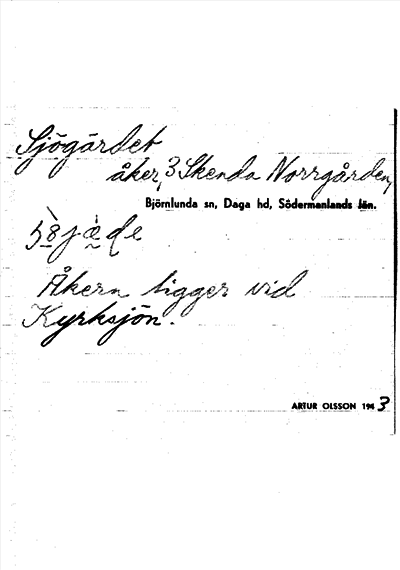 Sjögärdet
åker, 3 Skenda Norrgården,
Björnlunda sn, Daga hd, Södermanlands län.
Åkern ligger vid
Kyrksjön.
ARTUR OLSSON 1943